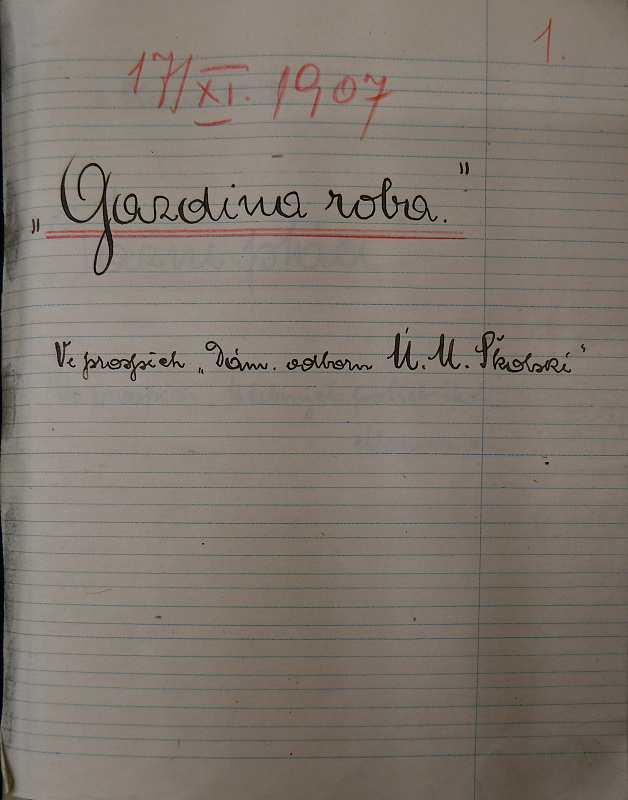 1.
17/XI. 1907
„Gazdina roba."
Ve prospěch „Dám. odboru Ú. M. Školské"